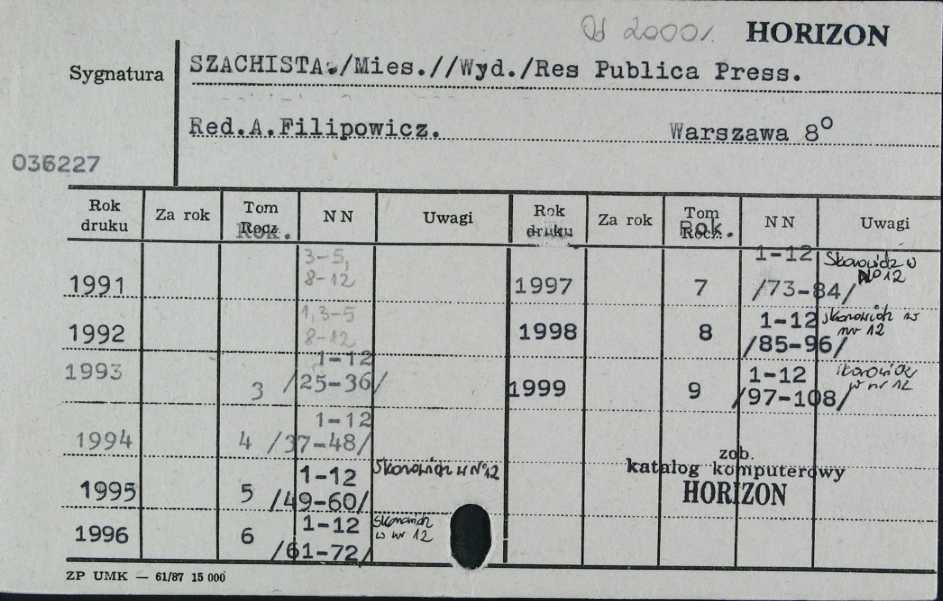 Od 2000r. HORIZON
Sygnatura SZACHISTA./Mies.//Wyd./Res Publica Press.
Red.A.Filipowicz. Warszawa 8°
036227
Rok druku Za rok Tom Rocz. Rok. NN Uwagi Rok druku Za rok Tom Rocz. Rok. NN Uwagi
1991 3-5, 8-12
1992 1,3-5 8-12
1993 3 1-12 /25-36/
1994 4 1-12 /37-48/
1995 5 1-12 /49-60/ Skorowidz w No 12
1996 6 1-12 /61-72/ skorowidz w nr 12
1997 7 1-12 /73-84/ Skorowidz w No 12
1998 8 1-12 /85-96/ skorowidz w nr 12
1999 9 1-12 /97-108/ skorowidz w nr 12
zob.
katalog komputerowy
HORIZON
ZP UMK — 61/87 15 000